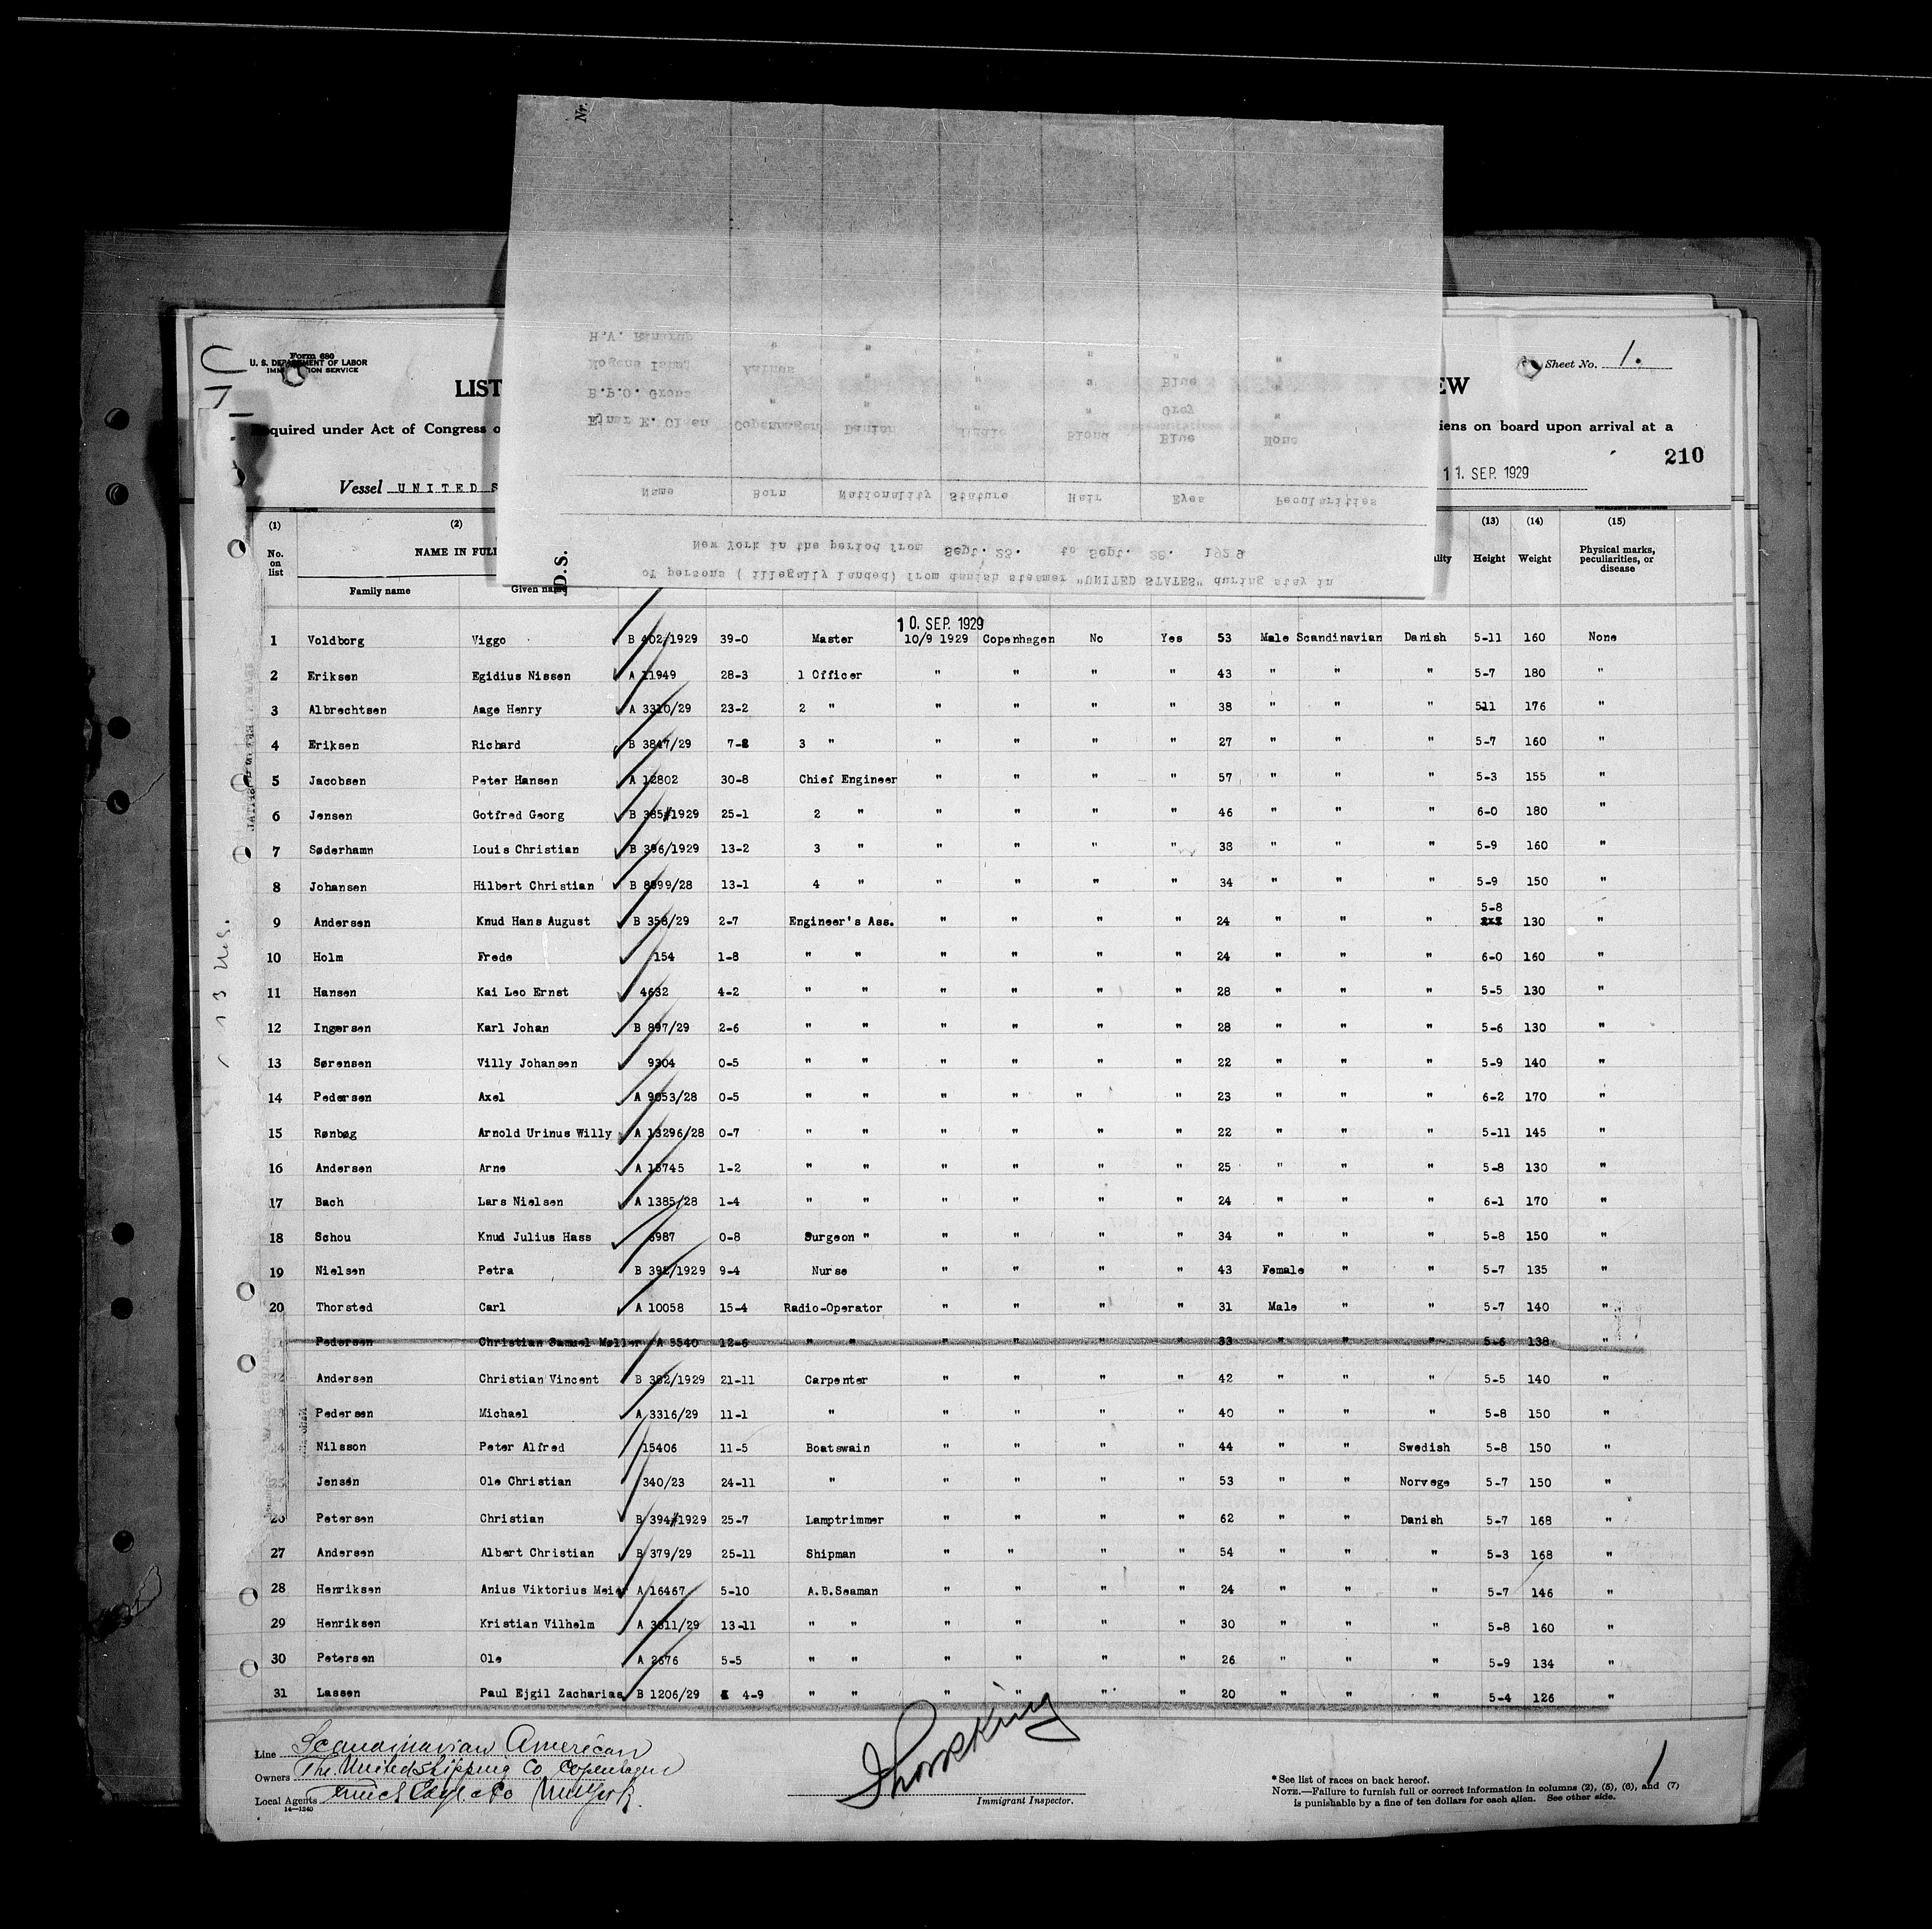 Nr.
H.V. Fenárup " " " " " "
Mogens Ising Aarhus " " " Blue "
B.P.O. Grons " " " " Grey "
Ejnar E. Olsen Copenhagen Danish Middle Blond Blue None
Name Born Nationality Stature Hair Eyes Pecularities
New York in the period from Sept. 23. to Sept. 28. 1929
of persons ( illegally landed) from danish steamer "UNITED STATES" during stay in
D.S.
Form 680
U. S. DEPARTMENT OF LABOR
IMMIGRATION SERVICE
Sheet No. 1.
LIST EW
quired under Act of Congress o iens on board upon arrival at a
210
Vessel UNITED S 11. SEP. 1929
(1) (2) (13) (14) (15)
No. on list NAME IN FULL lity Height Weight Physical marks, peculiarities, or disease
Family name Given name
10. SEP. 1929
1 Voldborg Viggo B 402/1929 39-0 Master 10/9 1929 Copenhagen No Yes 53 Male Scandinavian Danish 5-11 160 None
2 Eriksen Egidius Nissen A 11949 28-3 1 Officer " " " " 43 " " " 5-7 180 "
3 Albrechtsen Aage Henry A 3310/29 23-2 2 " " " " " 38 " " " 511 176 "
4 Eriksen Richard B 3847/29 7-8 3 " " " " " 27 " " " 5-7 160 "
5 Jacobsen Peter Hansen A 12802 30-8 Chief Engineer " " " " 57 " " " 5-3 155 "
6 Jensen Gotfred Georg B 385/1929 25-1 2 " " " " " 46 " " " 6-0 180 "
7 Søderhamn Louis Christian B 396/1929 13-2 3 " " " " " 38 " " " 5-9 160 "
8 Johansen Hilbert Christian B 8899/28 13-1 4 " " " " " 34 " " " 5-9 150 "
9 Andersen Knud Hans August B 358/29 2-7 Engineer's Ass. " " " " 24 " " " 5-8 130 "
10 Holm Frede 154 1-8 " " " " " " 24 " " " 6-0 160 "
11 Hansen Kai Leo Ernst 4632 4-2 " " " " " " 28 " " " 5-5 130 "
12 Ingersen Karl Johan B 897/29 2-6 " " " " " " 28 " " " 5-6 130 "
13 Sørensen Villy Johansen 9304 0-5 " " " " " " 22 " " " 5-9 140 "
14 Pedersen Axel A 9053/28 0-5 " " " " " " 23 " " " 6-2 170 "
15 Rønbøg Arnold Urinus Willy A 13296/28 0-7 " " " " " " 22 " " " 5-11 145 "
16 Andersen Arne A 15745 1-2 " " " " " " 25 " " " 5-8 130 "
17 Bach Lars Nielsen A 1385/28 1-4 " " " " " " 24 " " " 6-1 170 "
18 Schou Knud Julius Hass 6987 0-8 Surgeon " " " " " 34 " " " 5-8 150 "
19 Nielsen Petra B 392/1929 9-4 Nurse " " " " 43 Female " " 5-7 135 "
20 Thorsted Carl A 10058 15-4 Radio-Operator " " " " 31 Male " " 5-7 140 "
Pedersen Christian Samuel Møller A 5540 12-6 " " " " " " 33 " " " 5-6 138 "
Andersen Christian Vincent B 382/1929 21-11 Carpenter " " " " 42 " " " 5-5 140 "
Pedersen Michael A 3316/29 11-1 " " " " " 40 " " " 5-8 150 "
24 Nilsson Peter Alfred 15406 11-5 Boatswain " " " " 44 " " Swedish 5-8 150 "
Jensen Ole Christian 340/23 24-11 " " " " " 53 " " Norvege 5-7 150 "
26 Petersen Christian B 394/1929 25-7 Lamptrimmer " " " " 62 " " Danish 5-7 168 "
27 Andersen Albert Christian B 379/29 25-11 Shipman " " " " 54 " " " 5-3 168 "
28 Henriksen Anius Viktorius Meier A 16467 5-10 A.B.Seaman " " " " 24 " " " 5-7 146 "
29 Henriksen Kristian Vilhelm A 3311/29 13-11 " " " " " " 30 " " " 5-8 160 "
30 Petersen Ole A 2676 5-5 " " " " " " 26 " " " 5-9 134 "
31 Lassen Paul Ejgil Zacharias B 1206/29 4-9 " " " " " " 20 " " " 5-4 126 "
Line Scandinavian American
Owners The United Shipping Co Copenhagen
Local Agents Funch Edye & Co New York.
14—1240
Immigrant Inspector.
1
* See list of races on back hereof.
NOTE.—Failure to furnish full or correct information in columns (2), (5), (6), and (7)
is punishable by a fine of ten dollars for each alien. See other side.